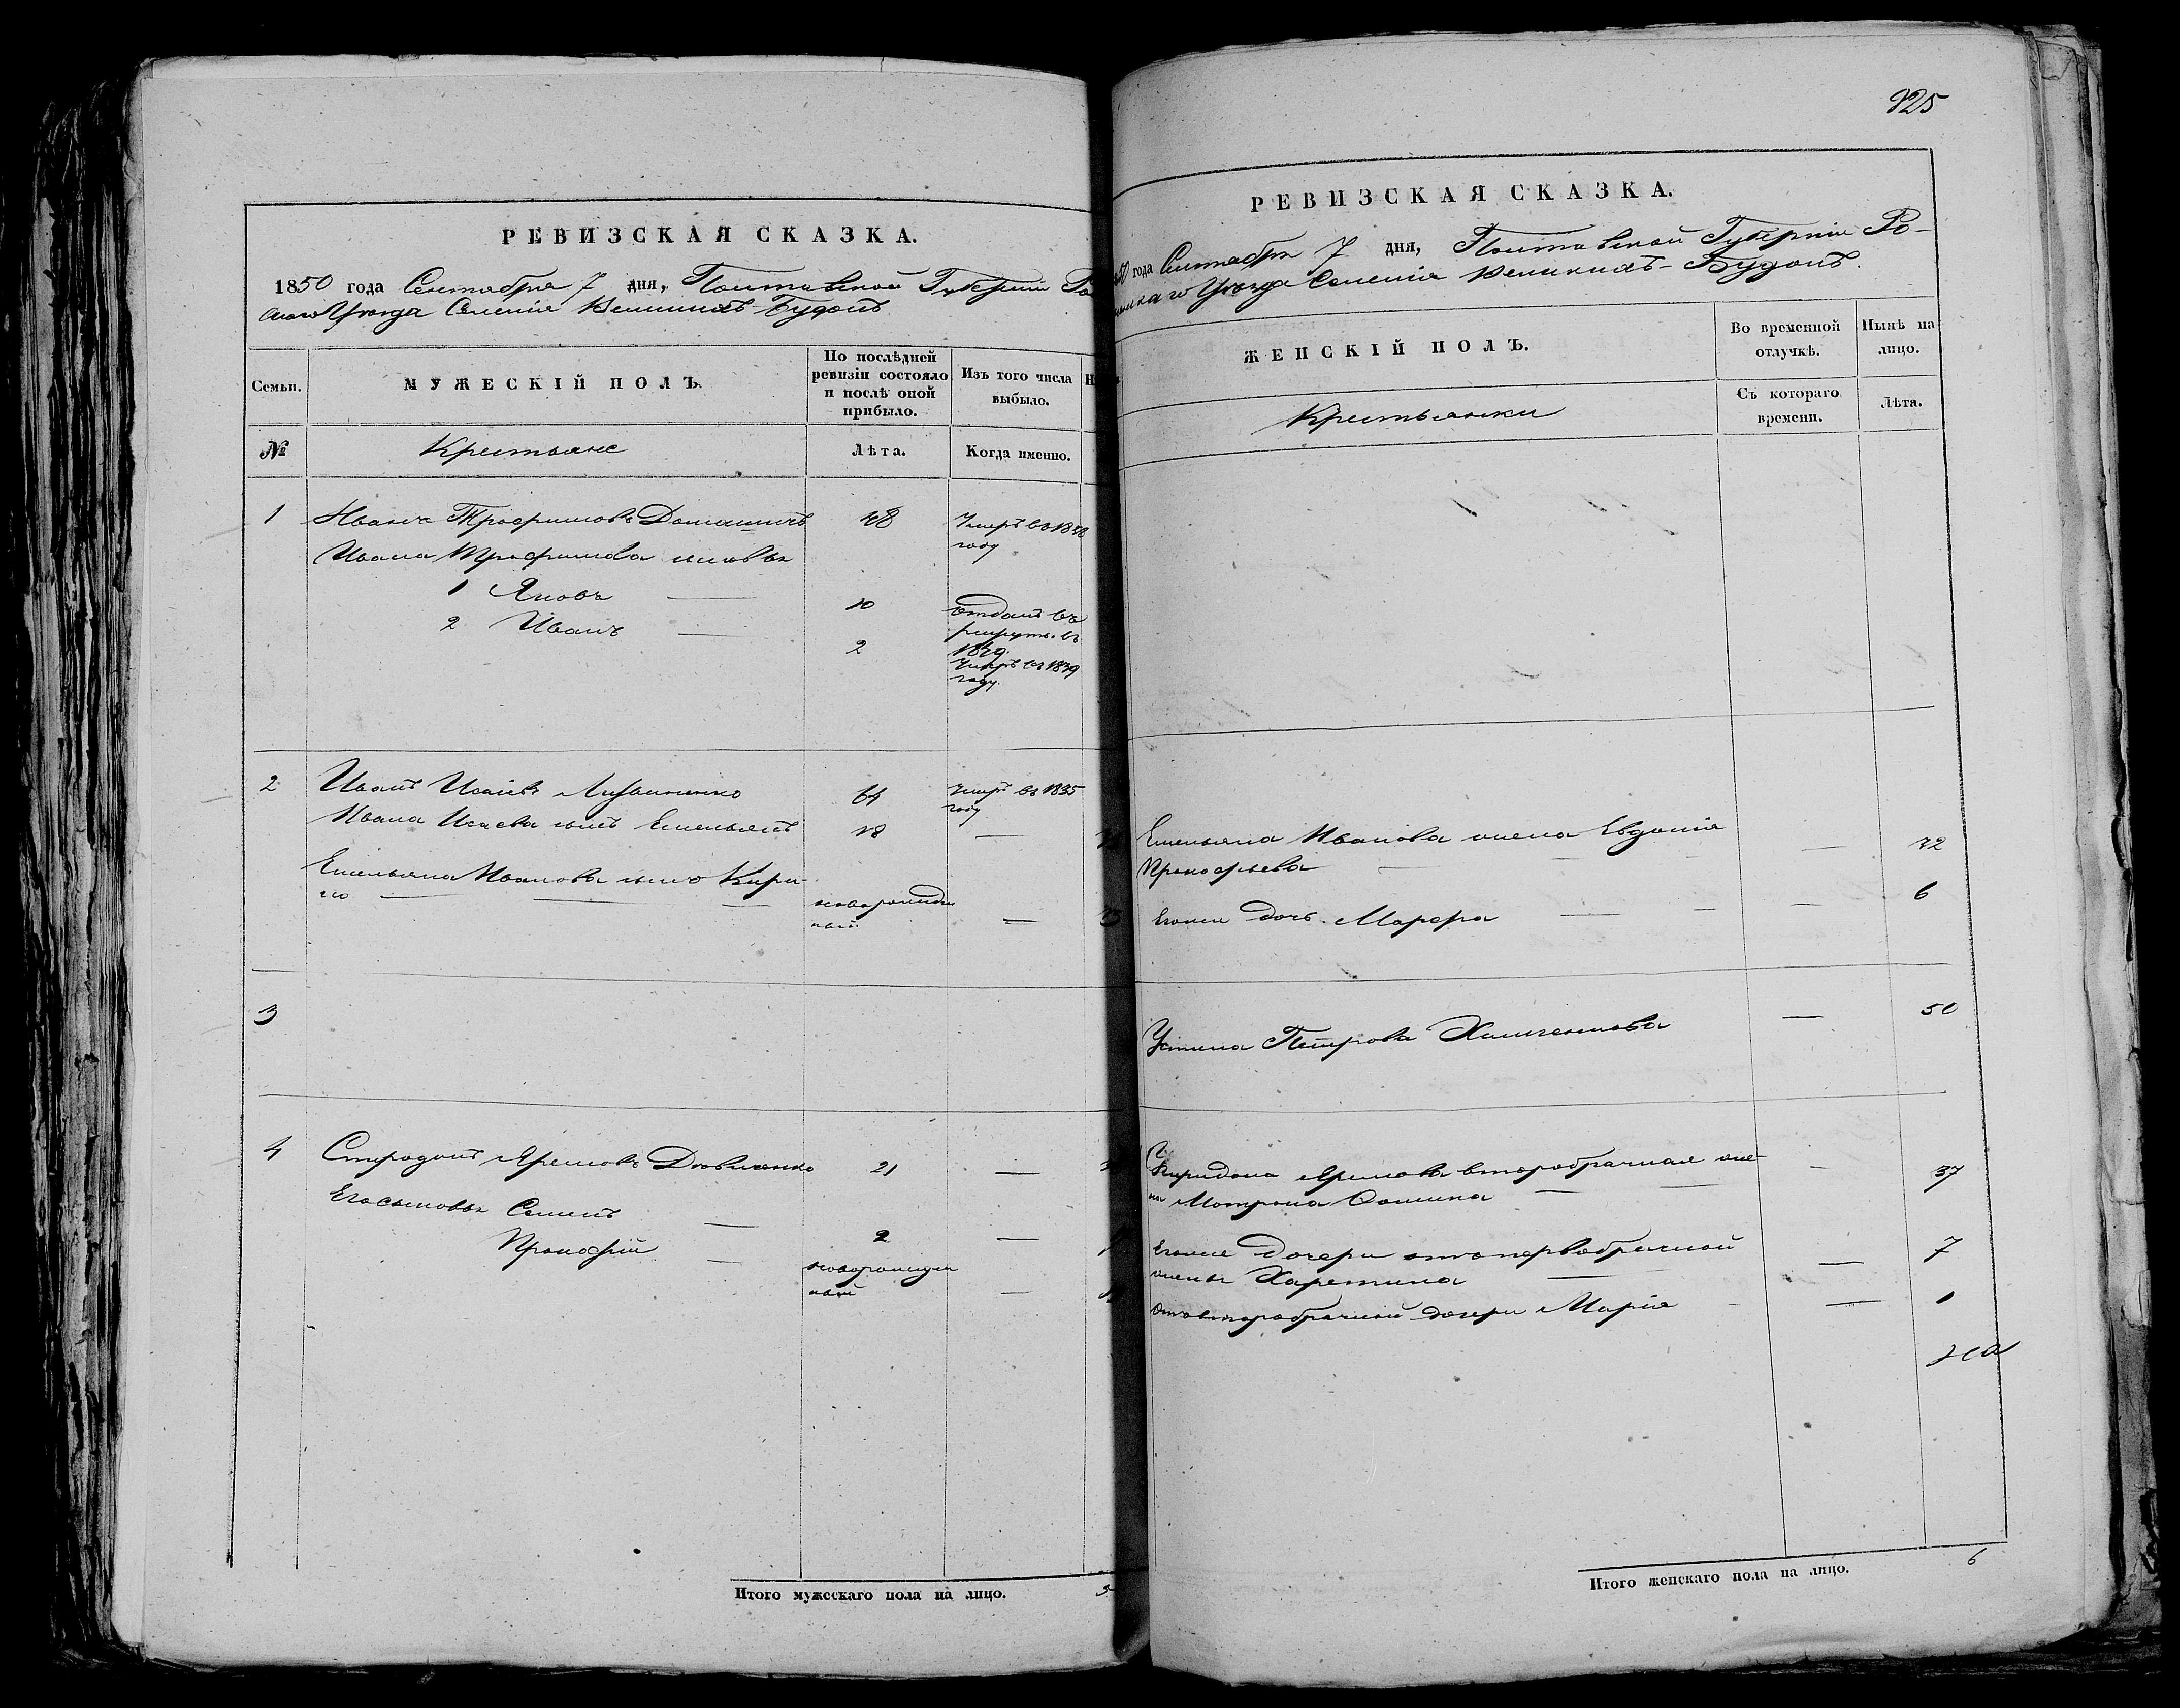 РЕВИЗСКАЯ СКАЗКА.
1850 года Сентября 7 дня, Полтавской Губерніи Ро
Уѣзда Селенія Великихъ-Будокъ
Семьи.
МУЖЕСКІЙ ПОЛЪ.
По послѣдней
ревизіи состояло
и послѣ оной
прибыло.
Изъ того числа
выбыло.
№
Крестьяне
Лѣта.
Когда именно.
1 Иванъ Трофимовъ 48 Умеръ въ
году
Ивана Трофимова сыновья
1 Яковъ — 10 Отданъ въ
рекруты въ
2 Иванъ — 2
Умеръ въ 1839
году.
2 Иванъ Исаевъ Литвиненко 64 Умеръ въ 1835
году
Ивана Исаева сынъ Емельянъ 18 —
Емельяна Иванова сынъ Кири-
ло — — — новорожден
ный —
3
4 Яремовъ 21 —
Его сыновья Семенъ — 2 —
Прокофій — новорожден
ный —
Итого мужескаго пола на лицо. 5
825
РЕВИЗСКАЯ СКАЗКА.
50 года Сентября 7 дня, Полтавской Губерніи Ро-
Уѣзда Селенія Великихъ-Будокъ.
ЖЕНСКІЙ ПОЛЪ.
Во временной
отлучкѣ.
Нынѣ на
лицо.
Крестьянки
Съ котораго
времени.
Лѣта.
Емельяна Иванова жена Евдокія
Прокофьева — — 32
Егоже дочь Марфа — — — 6
Устина Петрова — 50
Яремова второбрачная же-
на Мотрона — — — 37
Егоже дочери отъ первобрачной
жены Харетина — — 7
Отъ второбрачной дочери Марія — — 1
Итого женскаго пола на лицо. 6